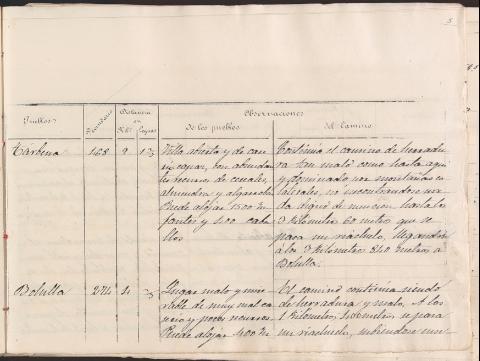 5
Pueblos
Vecindario
Distancia
en
Kils
Leguas
Observaciones
de los pueblos
del camino
Tárbena
168
9
Villa abierta y de
con abundan
tes recursos de cereales,
almendra y algarroba
Puede alojar 1500 In
fantes y 400 caba
llos
Continúa el camino de herradu
ra tan malo como hasta aqui
y dominado por montañas co
laterales, no encontrandose na
da digno de mencion hasta los
3 Kilometros 60 metros que se
pasa un riachuelo, llegandose
á los 9 Kilometros 840 metros á
Bolulla.
Bolulla
274
Lugar malo y mise
rable de muy mal ca
serio y pocos recursos
Puede alojar 400 In
El camino continúa siendo
de herradura y malo. A los
1 Kilometro, 400 metros se pasa
un riachuelo, subiendose